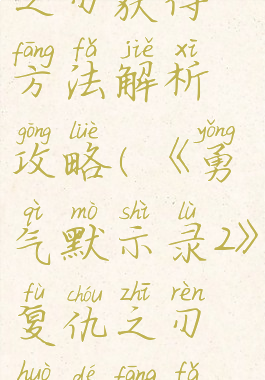 之刃获得
fāng fǎ jiě xī
方法解析
gōng lüè yǒng
攻略(《勇
qì mò shì lù
气默示录2》
fù chóu zhī rèn
复仇之刃
huò dé fāng fǎ